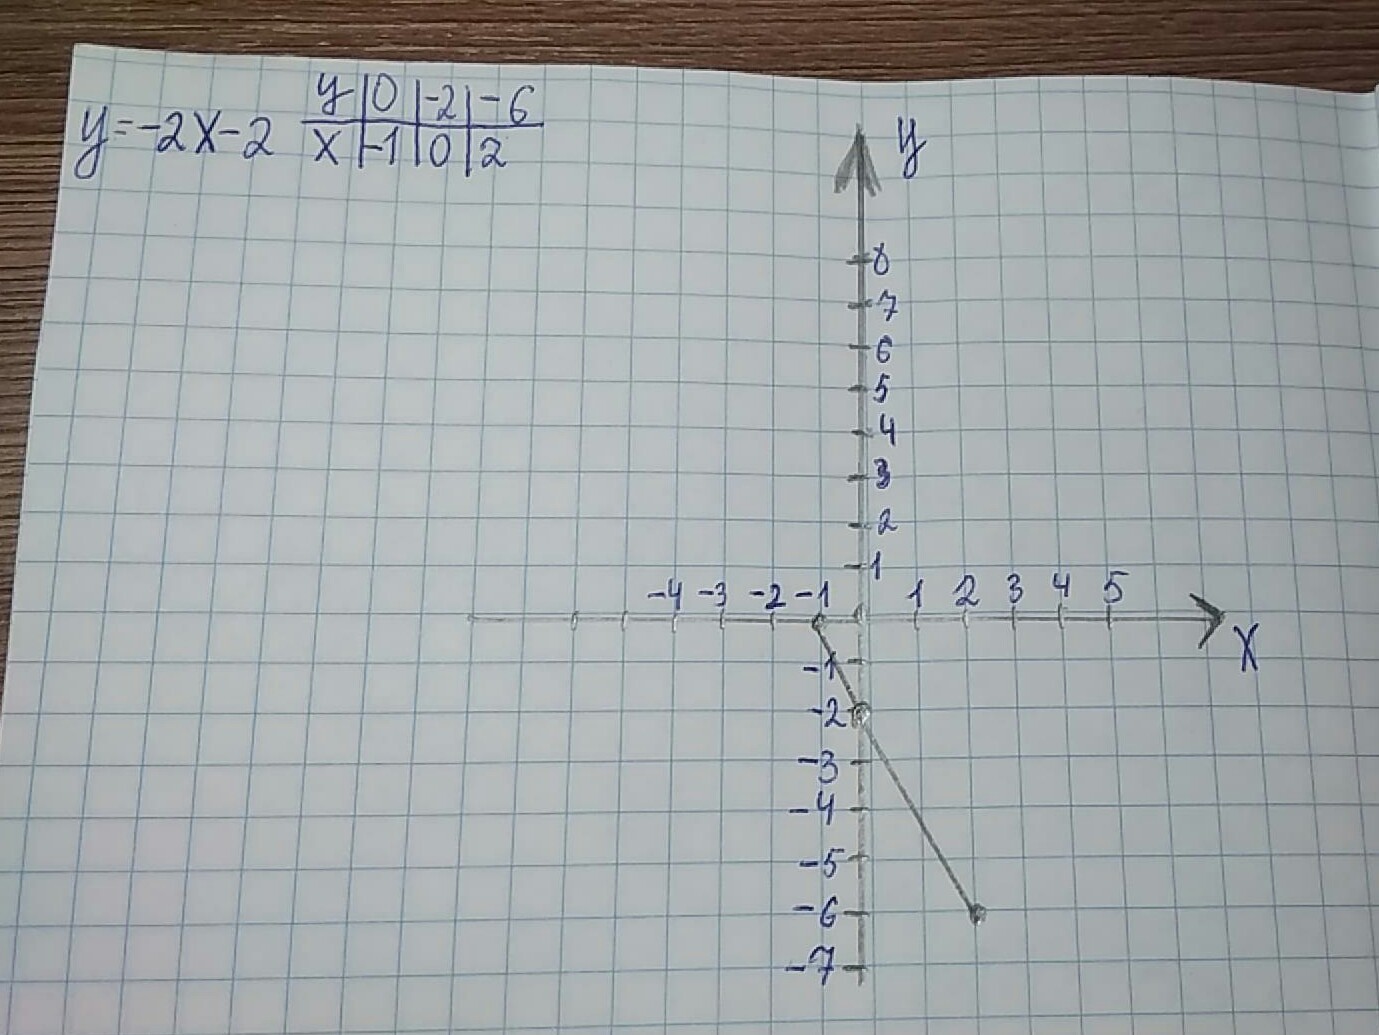 y 0 -2 -6
y=-2x-2 x -1 0 2
y
8
7
6
5
4
3
2
1
-4 -3 -2 -1 1 2 3 4 5
x
-1
-2
-3
-4
-5
-6
-7